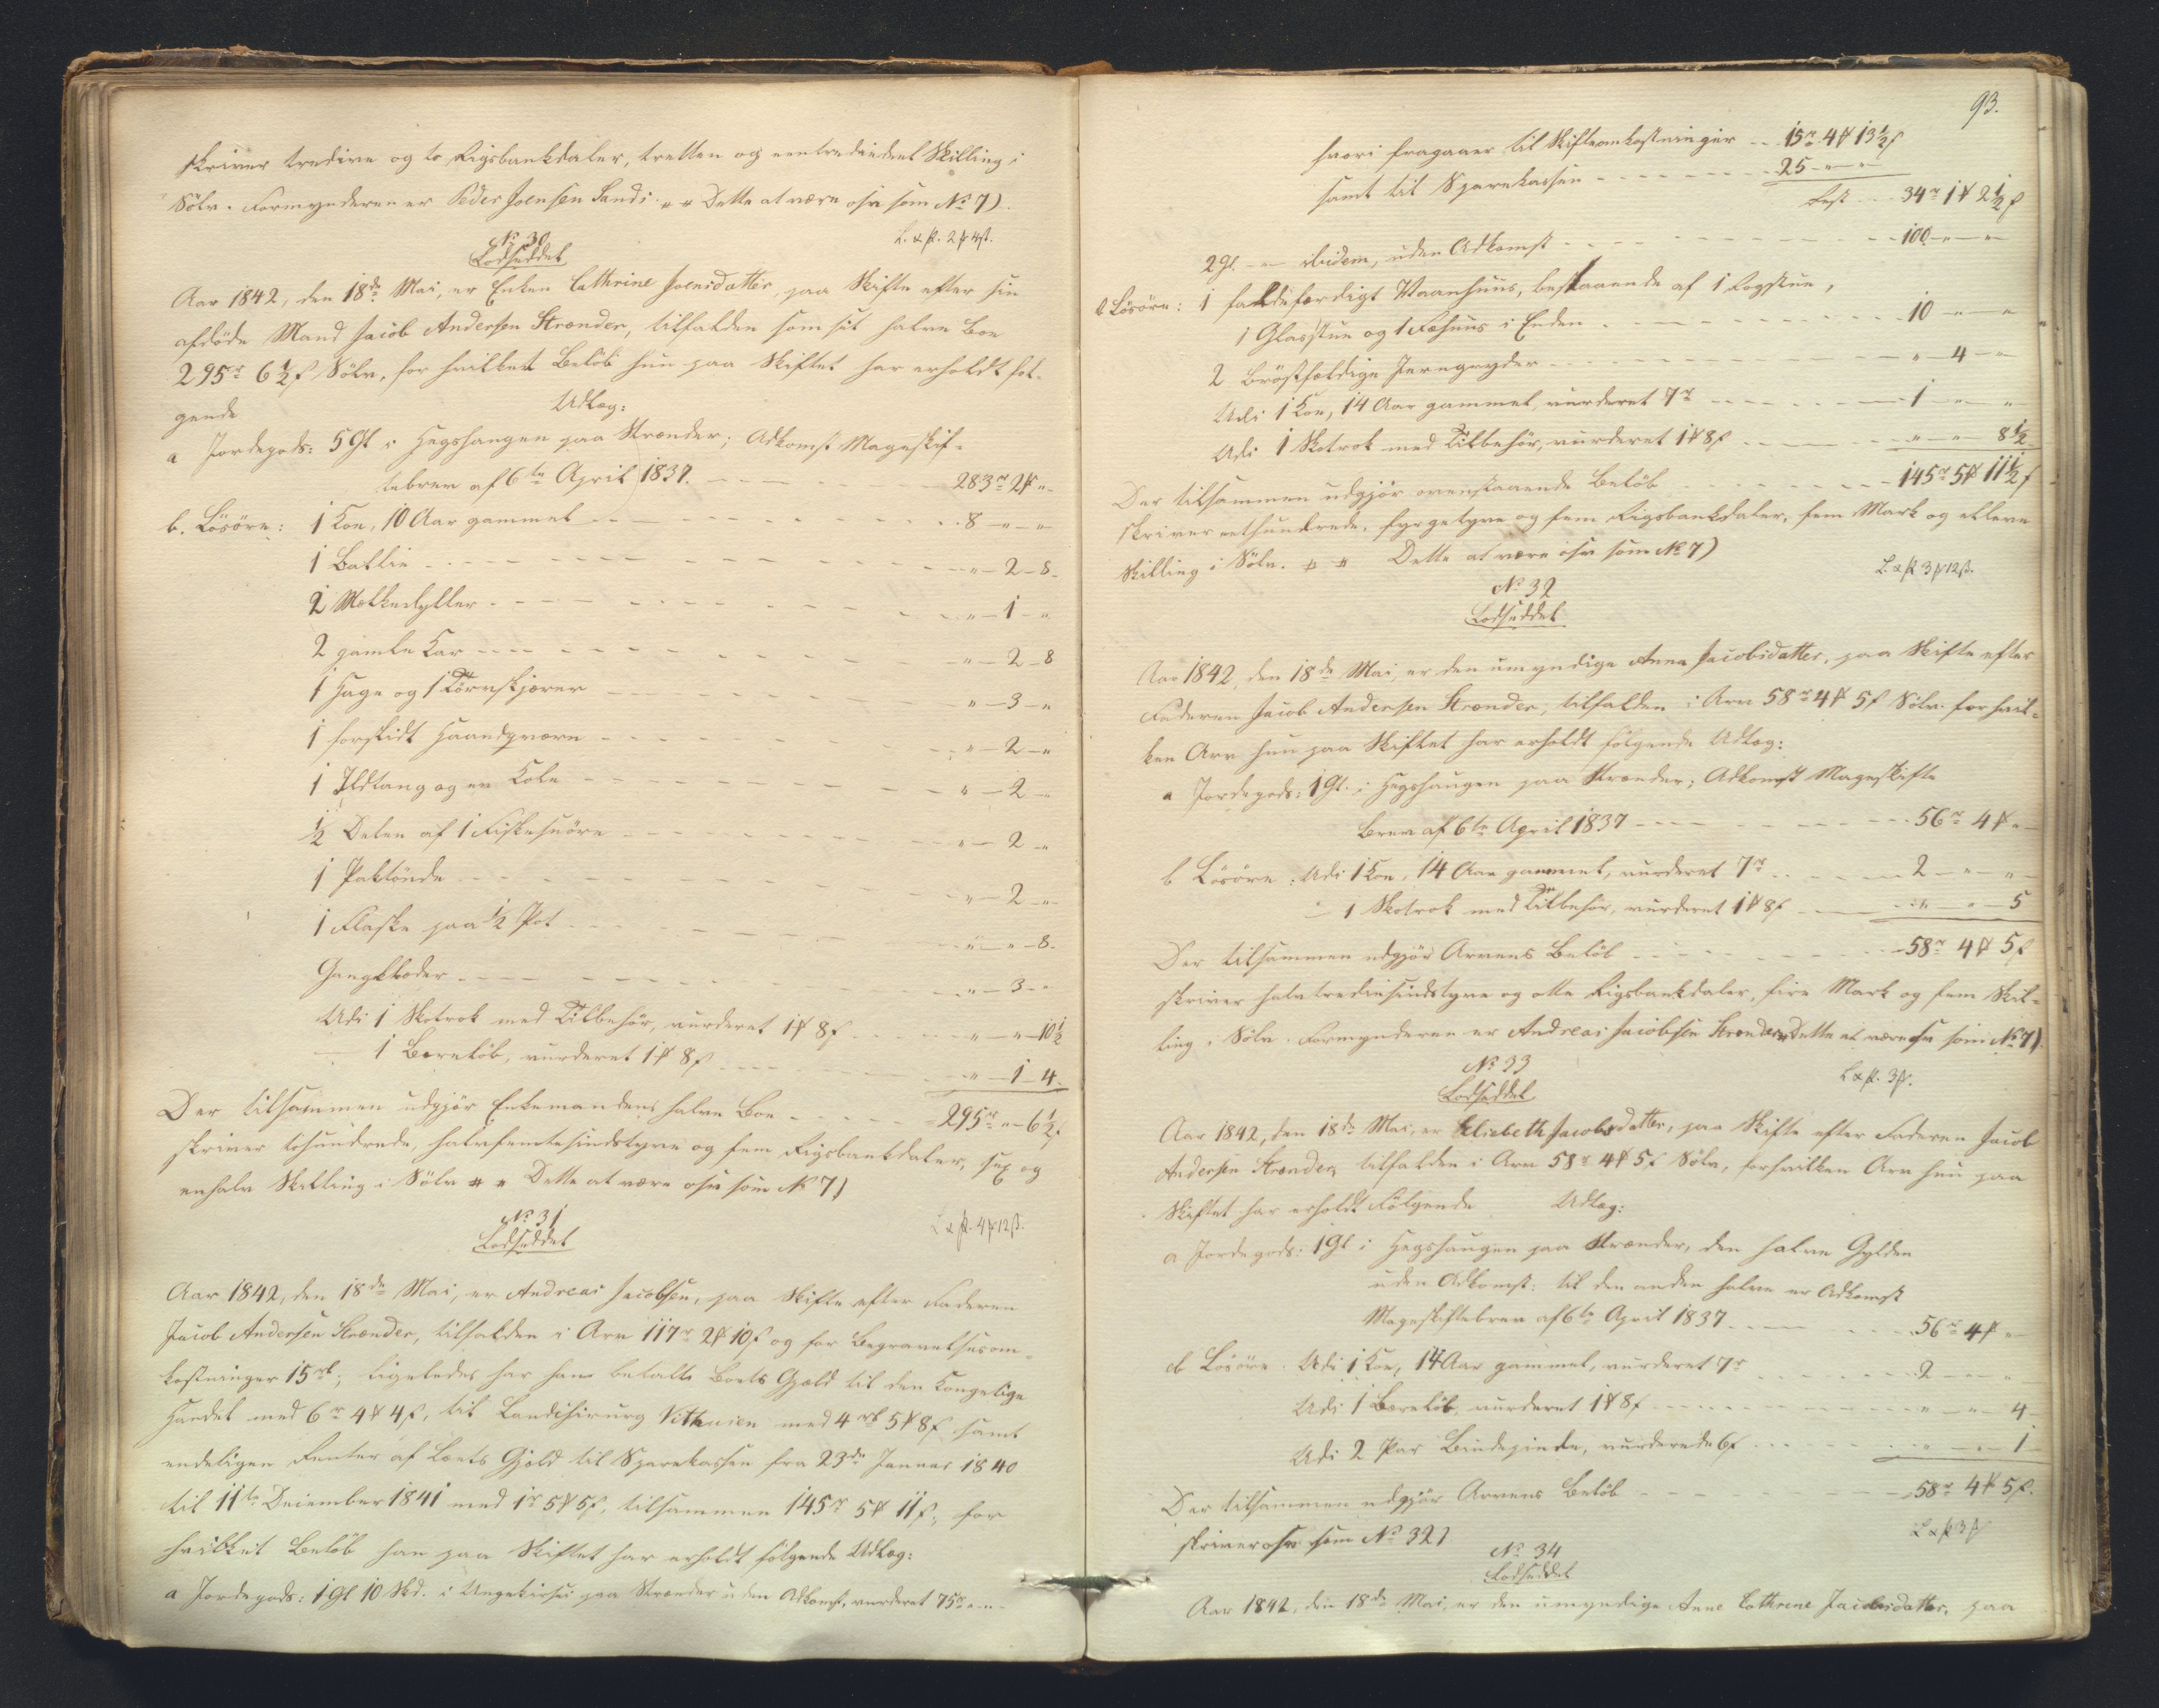 skriver tredive og to Rigsbankdaler, tretten og eentrediedeel Skilling i
Sölv. Formynderen er Peder Joensen Sandi. " " Dette at være osv som No 7).
No 30
Lodseddel
L. & ß. 2 # 4ß.
Aar 1842, den 18de Mai, er Enken Cathrine Joensdatter, paa Skifte efter sin
afdöde Mand Jacob Andersen Strænder, tilfalden som sit halve Boe
295r 6½ß Sölv, for hvilket Belöb hun paa Skiftet har erholdt föl-
gende Udlæg:
a Jordegods: 5 Gl i Hegshaugen paa Strænder; Adkomst Mageskif-
tebrev af 6te April 1837. 283r 2# "
b. Lösöre: 1 Koe, 10 Aar gammel 8 - " - "
1 Ballie " - 2 - 8
2 Melkebytter " - 1 - "
2 gamle Kar " - 2 - 8
1 Hage og 1 Törvskjærer " - 3 - "
1 forslidt Haandqværn " - 2 - "
1 Ildtang og en Kole " - 2 - "
½ Delen af 1 Fiskesnöre " - 2 - "
1 Saltönde " - 2 - "
1 Flaske paa ½ Pot " - " - 8
Gangklæder " - 3 - "
Udi 1 Skotrok med Tilbehör, vurderet 1# 8ß " - " - 10½
— 1 Bæreløb, vurderet 1# 8ß " - 1 - 4
Der tilsammen udgjör Enkemandens halve Boe 295r " - 6½ß
skriver tohundrede, halvfemtesindstyve og fem Rigsbankdaler, sex og
enhalv Skilling i Sölv " " Dette at være osv som No 7)
No 31
Lodseddel
L & ß. 4# 12ß.
Aar 1842, den 18de Mai, er Andreas Jacobsen, paa Skifte efter Faderen
Jacob Andersen Strænder, tilfalden i Arv 117r 2# 10ß og for Begravelsesom-
kostninger 15rb; ligeledes har han betalt Boets Gjæld til den Kongelige
Handel med 6r 4# 4ß, til Landchirurg Vithusen med 4rb 5# 8ß samt
endeligen Renter af Boets Gjæld til Sparekassen fra 23de Januar 1840
til 11te December 1841 med 1r 5# 5ß, tilsammen 145r 5# 11ß, for
hvilket Belöb han paa Skiftet har erholdt fölgende Udlæg:
a Jordegods: 1 Gl 10 Skd. i paa Strænder uden Adkomst, vurderet 75r " - "
93.
hvori fragaaer til Skifteomkostninger 15r 4# 13½ß
samt til Sparekassen 25 - " - "
Rest 34r 1# 2½ß
2 Gl. - " ibidem, uden Adkomst 100 - " - "
b Lösöre: 1 faldefærdigt Vaanhuus, bestaaende af 1 Rogstue,
1 Glasstue og 1 Fæhuus i Enden 10 - " - "
2 Bröstfældige Jerngryder " - 4 - "
Udi 1 Koe, 14 Aar gammel, vurderet 7r 1 - " - "
Udi 1 Skotrok med Tilbehör, vurderet 1# 8ß " - " - 8½
Der tilsammen udgjör ovenstaaende Belöb 145r 5# 11½ß
skriver eethundrede, fyrgetyve og fem Rigsbankdaler, fem Mark og elleve
Skilling i Sölv. " " Dette at være osv som No 7)
No 32
Lodseddel
L. & ß 3# 12ß.
Aar 1842, den 18de Mai, er den umyndige Anna Jacobsdatter, paa Skifte efter
Faderen Jacob Andersen Strænder, tilfalden i Arv 58r 4# 5ß Sölv. for hvil-
ken Arv hun paa Skiftet har erholdt fölgende Udlæg:
a Jordegods: 1 Gl. i Hegshaugen paa Strænder; Adkomst Mageskifte
Brev af 6te April 1837 56r 4# "
b Lösöre: Udi 1 Koe, 14 Aar gammel, vurderet 7r 2 - " - "
— 1 Skotrok med Tilbehör, vurderet 1# 8ß " - " - 5
Der tilsammen udgjör Arvens Belöb 58r 4# 5ß
skriver halvtrediesindstyve og otte Rigsbankdaler, fire Mark og fem Skil-
ling i Sölv. Formynderen er Andreas Jacobsen Strænder. Dette at være osv som No 7).
No 33
Lodseddel
L & ß. 3#.
Aar 1842, den 18de Mai, er Elisbeth Jacobsdatter, paa Skifte efter Faderen Jacob
Andersen Strænder, tilfalden i Arv 58r 4# 5ß Sölv, forhvilken Arv hun paa
Skiftet har erholdt Fölgende Udlæg:
a Jordegods: 1 Gl i Hegshaugen paa Strænder, den halve Gylden
uden Adkomst: til den anden halve er Adkomst
Mageskiftebrev af 6te April 1837 56r 4# "
b Lösöre: Udi 1 Koe, 14 Aar gammel, vurderet 7r 2 - " - "
Udi 1 Bæreløb, vurderet 1# 8ß " - " - 4
Udi 2 Par Bindepinde, vurderede 6ß " - " - 1
Der tilsammen udgjör Arvens Belöb 58r 4# 5ß.
skriver osv som No 32)
L & ß 3#
No 34
Lodseddel
Aar 1842, den 18de Mai, er den umyndige Anne Cathrene Jacobsdatter, paa